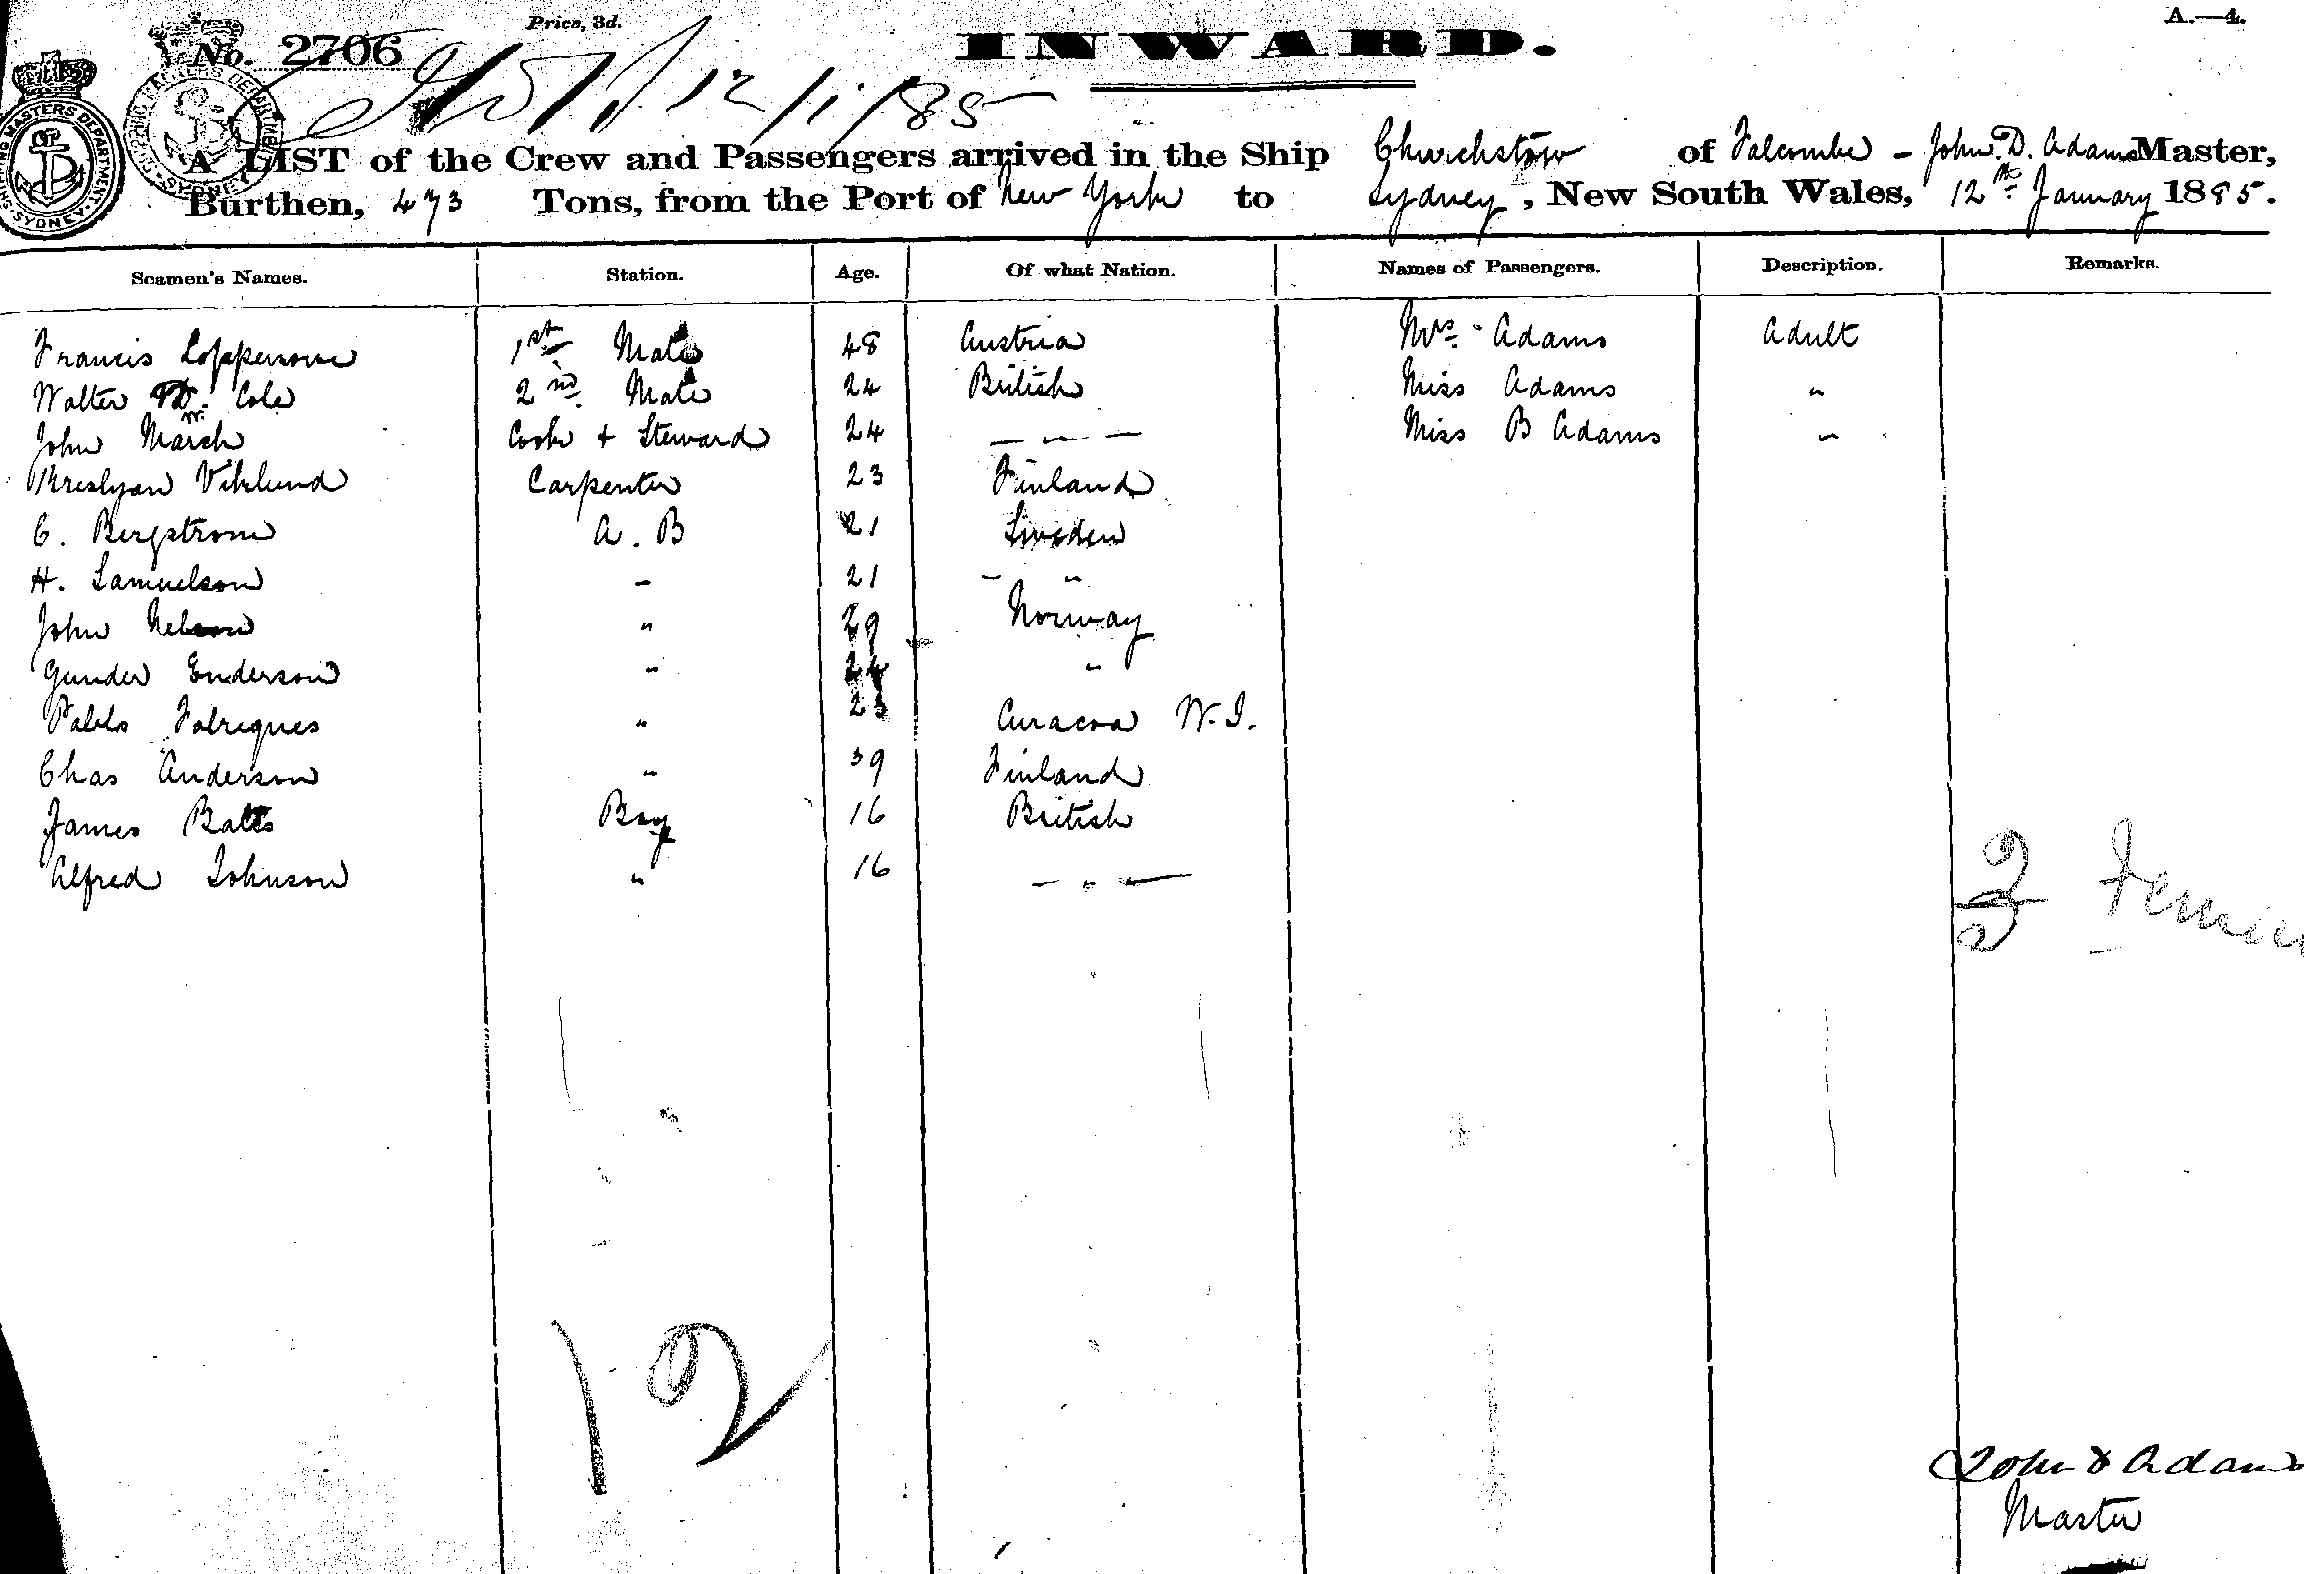 No. 2706
Price, 3d.
INWARD.
A.—4.
12/1/85
SHIPPING MASTERS DEPARTMENT SYDNEY
A LIST of the Crew and Passengers arrived in the Ship Churchstow of Salcombe - John. D. Adams Master,
Burthen, 473 Tons, from the Port of New York to Sydney, New South Wales, 12th January 1885.
Seamen's Names. Station. Age. Of what Nation. Names of Passengers. Description. Remarks.
Francis 1st Mate 48 Austria Mrs Adams Adult
Walter W. Cole 2nd Mate 24 British Miss Adams "
John March Cook + Steward 24 — " — Miss B Adams "
Carpenter 23 Finland
C. Bergstrom A. B 21 Sweden
H. Samuelson - 21 - "
John Nelson " 29 Norway
Gunder Enderson " 24 "
Pablo Fabriques " 23 Curacoa W. I.
Chas Anderson " 39 Finland
James Batts Boy 16 British
Alfred Johnson " 16 — " —
2
12
John D Adams
Master